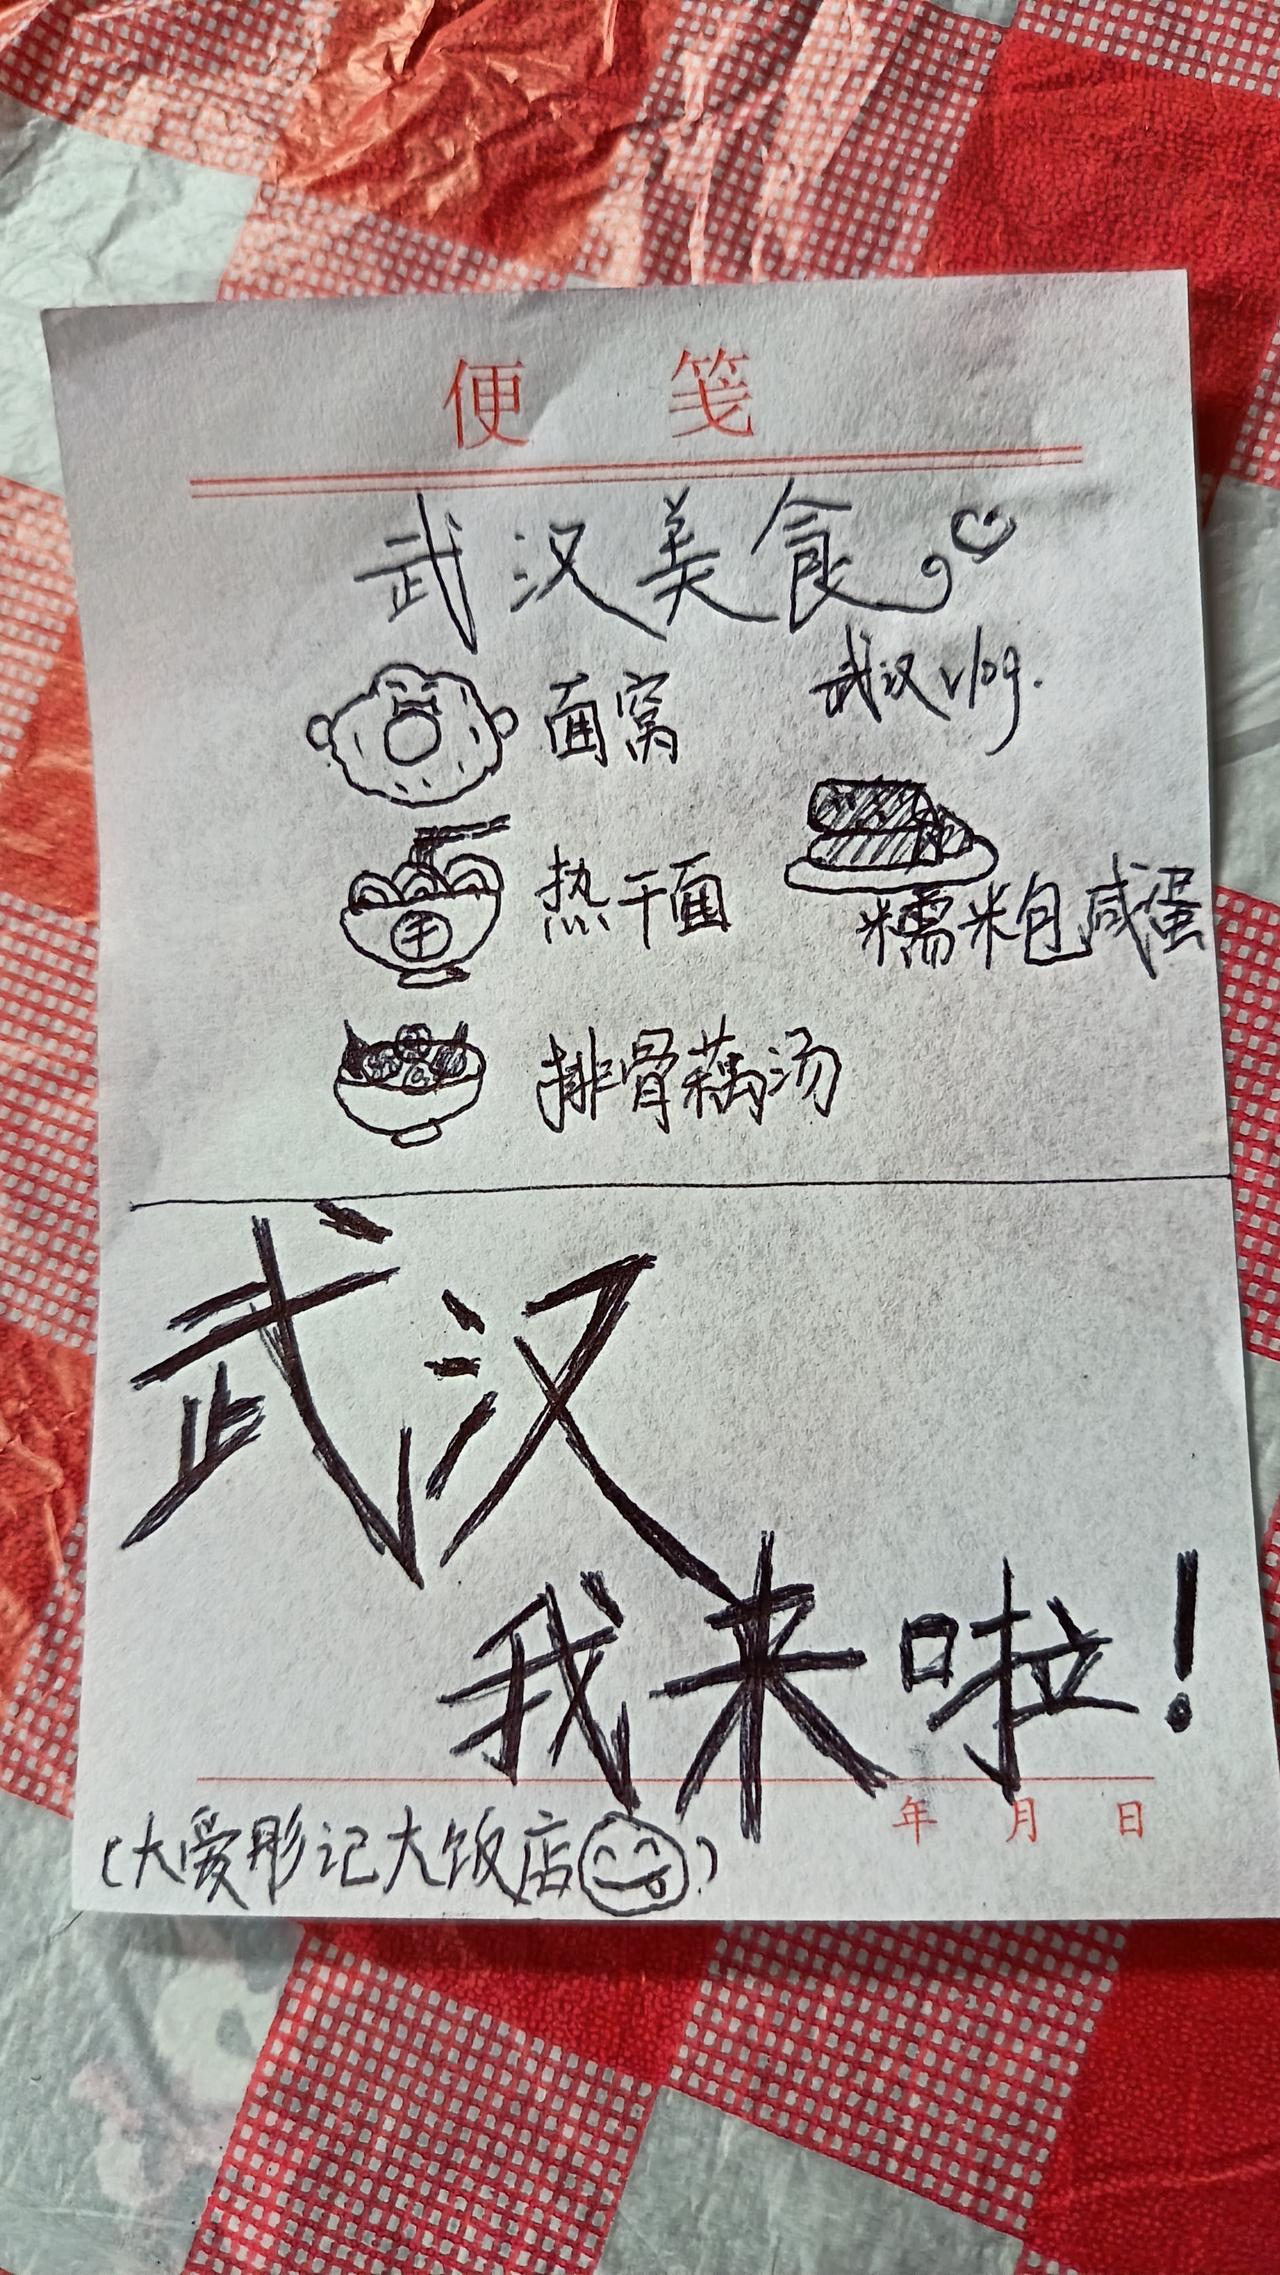 便笺
武汉美食
武汉vlog.
面窝
热干面
糯米包咸蛋
排骨藕汤
武汉
我来啦！
年 月 日
(大爱彤记大饭店)